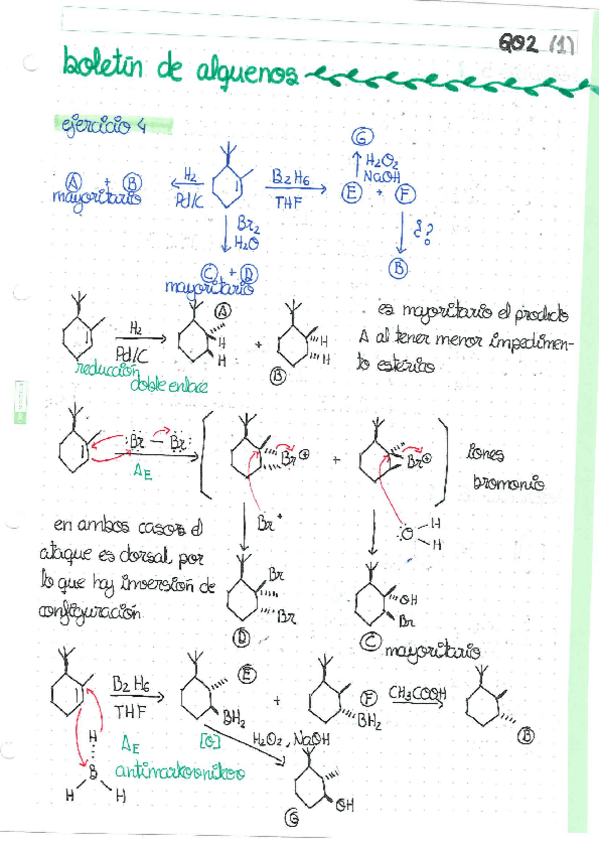 QO2 (1)
boletín de alquenos
ejercicio 4
G
H2O2
NaOH
A + B
mayoritario
H2
Pd/C
B2H6
THF
E + F
Br2
H2O
¿?
C + D
mayoritario
B
H2
Pd/C
reducción
doble enlace
A
H
H
+
H
H
B
es mayoritario el producto
A al tener menor impedimen-
to estérico
Br — Br
AE
Br⊕
+
Br⊕
Iones
bromonio
en ambos casos el
ataque es dorsal, por
lo que hay inversión de
configuración
Br
O
H
H
Br
Br
D
OH
Br
C
mayoritario
B2H6
THF
AE
antimarkovnikov
H
B
H
H
E
BH2
+
F
BH2
CH3COOH
B
[O]
H2O2, NaOH
OH
G